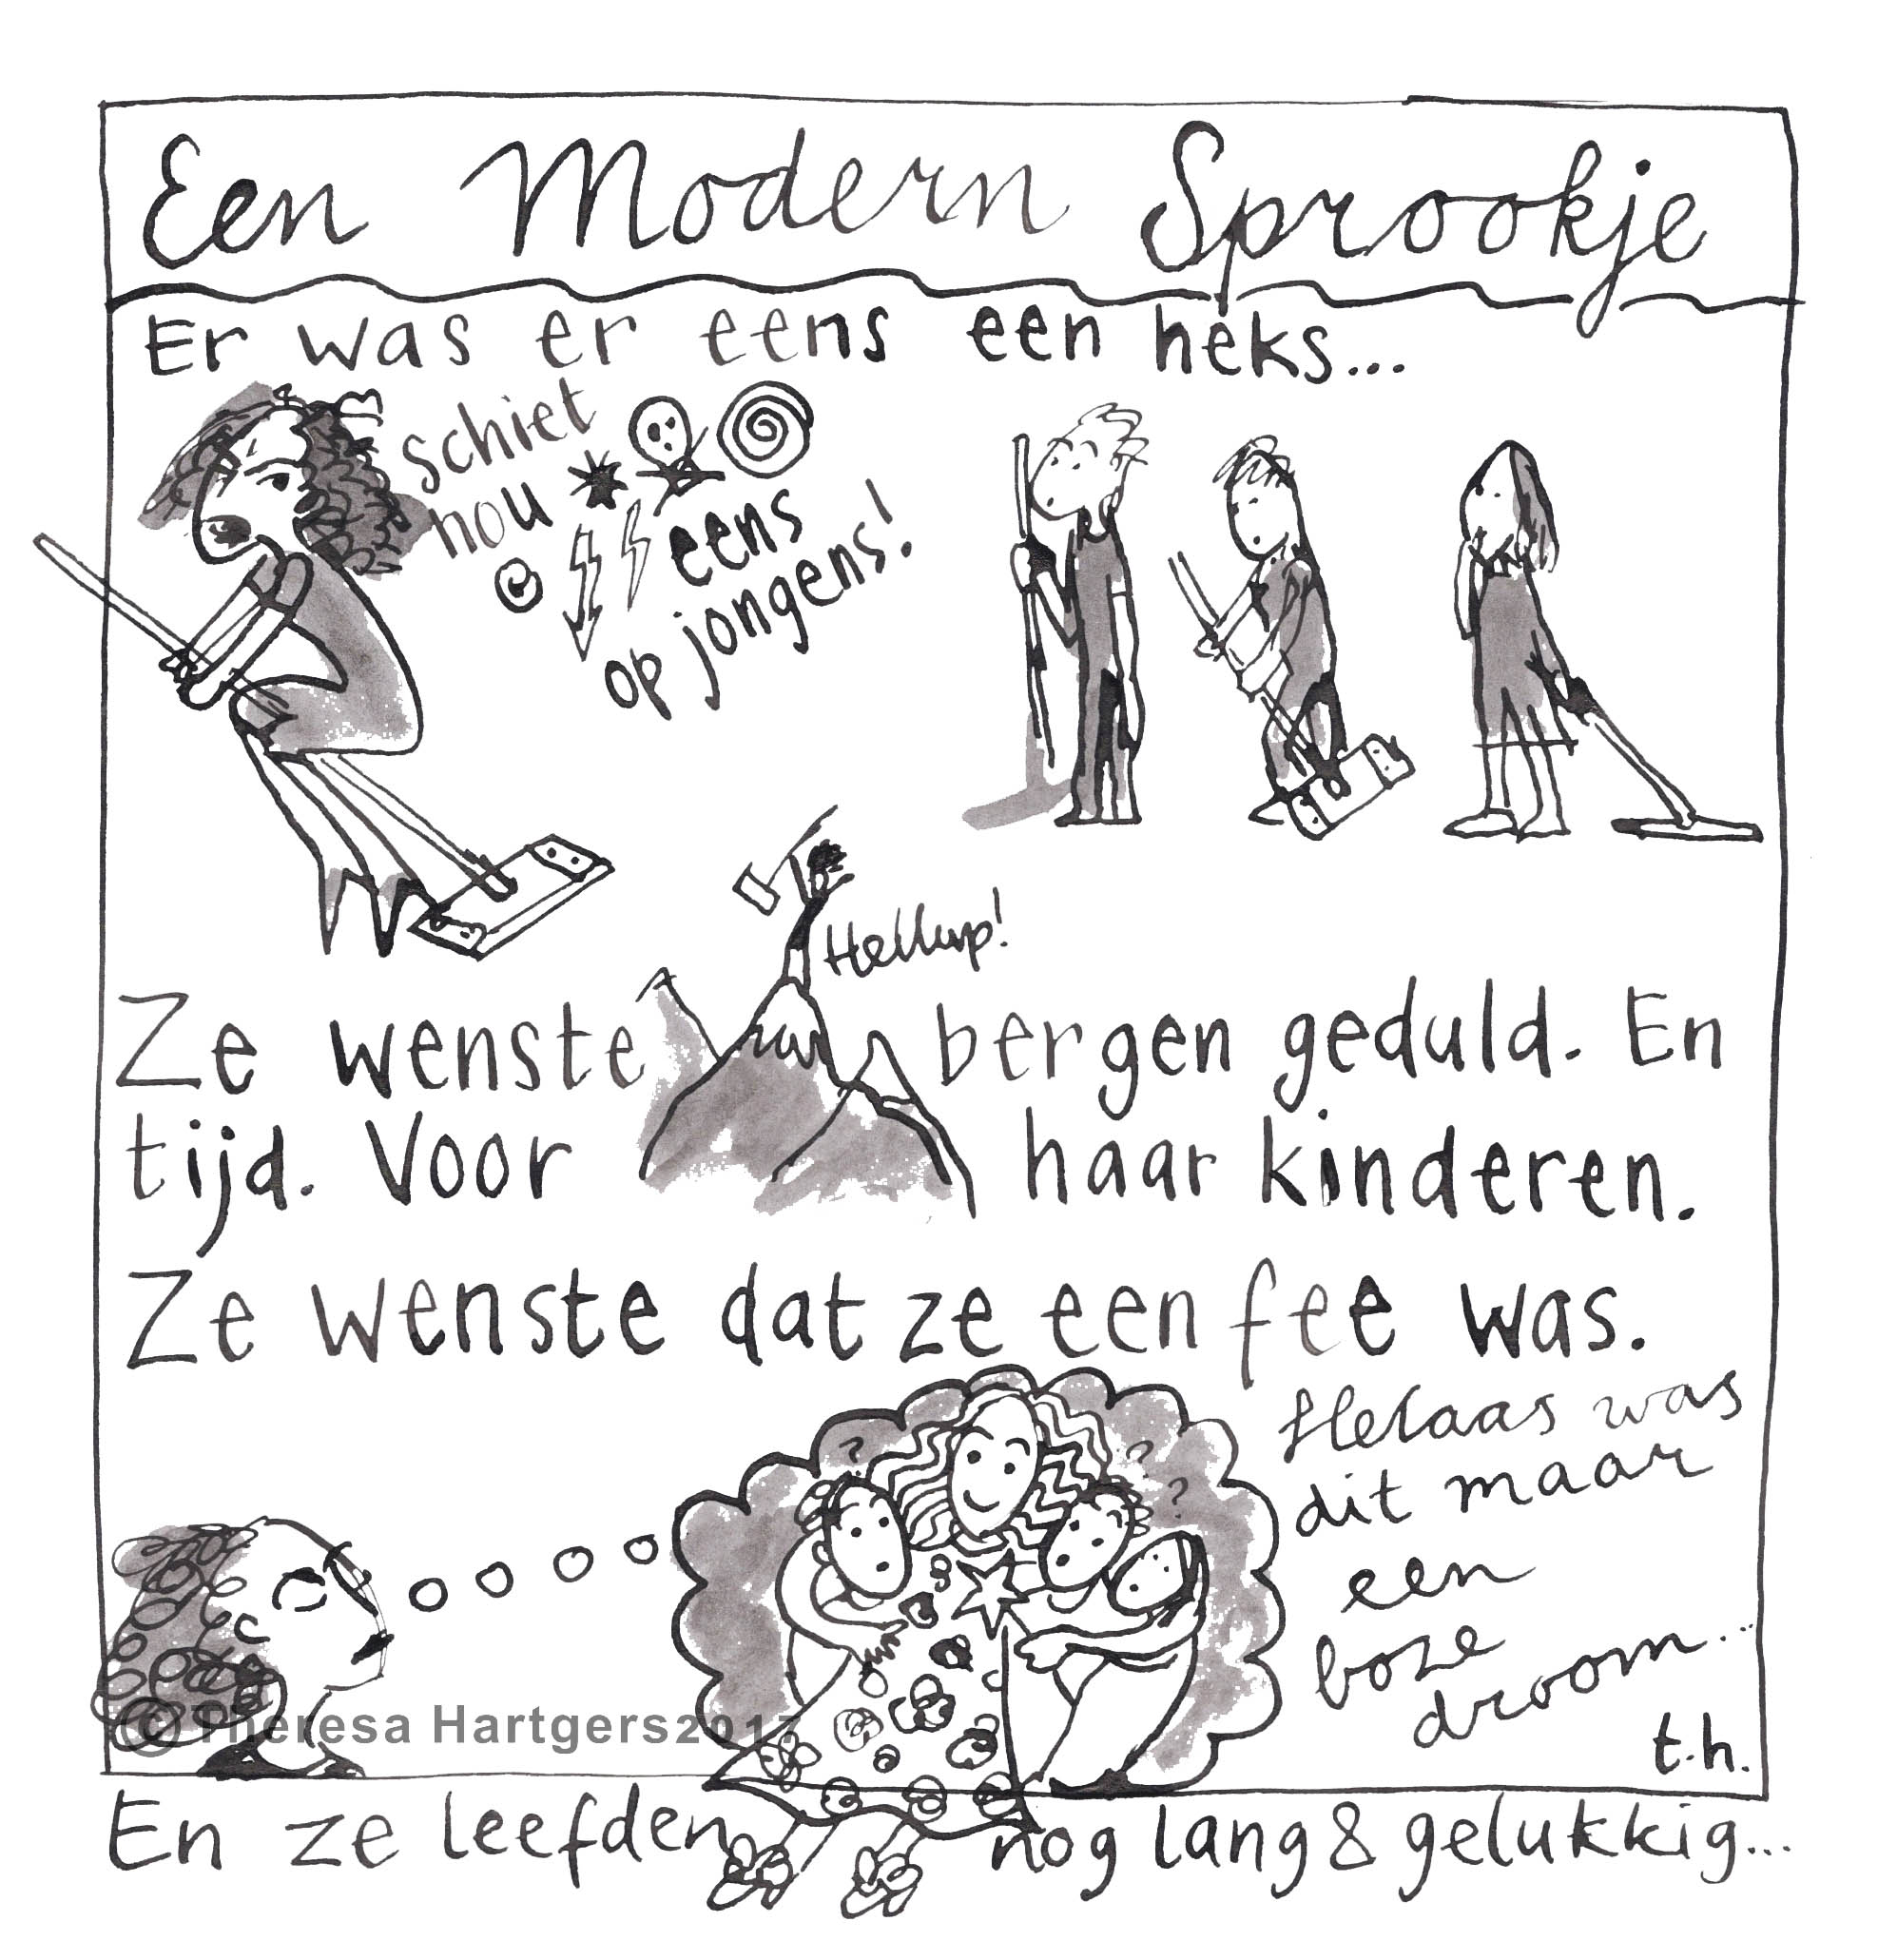 Een Modern Sprookje
Er was er eens een heks...
schiet
nou
eens
op jongens!
Hellup!
Ze wenste bergen geduld. En
tijd. Voor haar kinderen.
Ze wenste dat ze een fee was.
? ? ?
Helaas was
dit maar
een
boze
droom...
t.h.
© Theresa Hartgers2017
En ze leefden nog lang & gelukkig...